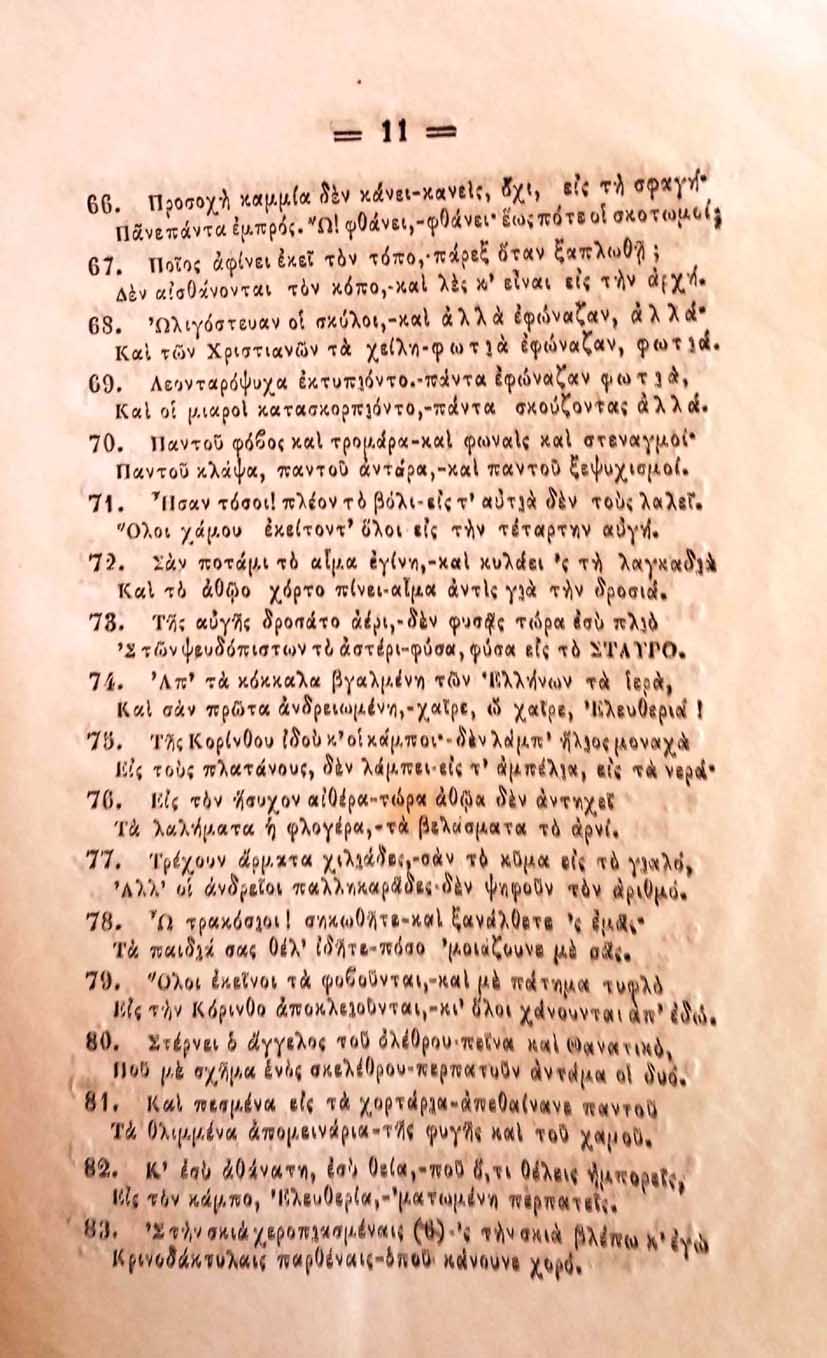 = 11 =
66. Προσοχὴ καμμία δὲν κάνει-κανεὶς, ὄχι, εἰς τὴ σφαγή·
Πᾶνε πάντα ἐμπρός. Ὢ! φθάνει,-φθάνει· ἕως πότε οἱ σκοτωμοί;
67. Ποῖος ἀφίνει ἐκεῖ τὸν τόπο,-πάρεξ ὅταν ξαπλωθῇ;
Δὲν αἰσθάνονται τὸν κόπο,-καὶ λὲς κ' εἶναι εἰς τὴν ἀρχή.
68. Ὠλιγόστευαν οἱ σκύλοι,-καὶ ἀλλὰ ἐφώναζαν, ἀλλά·
Καὶ τῶν Χριστιανῶν τὰ χείλη-φωτιὰ ἐφώναζαν, φωτιά.
69. Λεονταρόψυχα ἐκτυπιόντο.-πάντα ἐφώναζαν φωτιὰ,
Καὶ οἱ μιαροὶ κατασκορπιόντο,-πάντα σκούζοντας ἀλλά.
70. Παντοῦ φόβος καὶ τρομάρα-καὶ φωναὶς καὶ στεναγμοί·
Παντοῦ κλάψα, παντοῦ ἀντάρα,-καὶ παντοῦ ξεψυχισμοί.
71. Ἦσαν τόσοι! πλέον τὸ βόλι-εἰς τ' αὐτιὰ δὲν τοὺς λαλεῖ.
Ὅλοι χάμου ἐκείτοντ' ὅλοι εἰς τὴν τέταρτην αὐγή.
72. Σὰν ποτάμι τὸ αἷμα ἐγίνη,-καὶ κυλάει 'ς τὴ λαγκαδιὰ
Καὶ τὸ ἀθῷο χόρτο πίνει-αἷμα ἀντὶς γιὰ τὴν δροσιά.
73. Τῆς αὐγῆς δροσάτο ἀέρι,-δὲν φυσᾷς τώρα ἐσὺ πλιὸ
'Σ τῶν ψευδόπιστων τὸ ἀστέρι-φύσα, φύσα εἰς τὸ ΣΤΑΥΡΟ.
74. Ἀπ' τὰ κόκκαλα βγαλμένη τῶν Ἑλλήνων τὰ ἱερὰ,
Καὶ σὰν πρῶτα ἀνδρειωμένη,-χαῖρε, ὢ χαῖρε, Ἐλευθεριά!
75. Τῆς Κορίνθου ἰδοὺ κ' οἱ κάμποι·-δὲν λάμπ' ἥλιος μοναχὰ
Εἰς τοὺς πλατάνους, δὲν λάμπει-εἰς τ' ἀμπέλια, εἰς τὰ νερά·
76. Εἰς τὸν ἥσυχον αἰθέρα-τώρα ἀθῷα δὲν ἀντηχεῖ
Τὰ λαλήματα ἡ φλογέρα,-τὰ βελάσματα τὸ ἀρνί.
77. Τρέχουν ἅρματα χιλιάδες,-σὰν τὸ κῦμα εἰς τὸ γιαλό,
Ἀλλ' οἱ ἀνδρεῖοι παλληκαράδες-δὲν ψηφοῦν τὸν ἀριθμό.
78. Ὦ τρακόσιοι! σηκωθῆτε-καὶ ξανάλθετε 'ς ἐμᾶς·
Τὰ παιδιά σας θέλ' ἰδῆτε-πόσο 'μοιάζουνε μὲ σᾶς.
79. Ὅλοι ἐκεῖνοι τὰ φοβοῦνται,-καὶ μὲ πάτημα τυφλὸ
Εἰς τὴν Κόρινθο ἀποκλειοῦνται,-κι' ὅλοι χάνουνται ἀπ' ἐδώ.
80. Στέρνει ὁ ἄγγελος τοῦ ὀλέθρου-πεῖνα καὶ Θανατικό,
Ποῦ μὲ σχῆμα ἑνὸς σκελέθρου-περπατοῦν ἀντάμα οἱ δυό.
81. Καὶ πεσμένα εἰς τὰ χορτάρια-ἀπεθαίνανε παντοῦ
Τὰ θλιμμένα ἀπομεινάρια-τῆς φυγῆς καὶ τοῦ χαμοῦ.
82. Κ' ἐσὺ ἀθάνατη, ἐσὺ θεία,-ποῦ ὅ,τι θέλεις ἠμπορεῖς,
Εἰς τὸν κάμπο, Ἐλευθερία,-'ματωμένη περπατεῖς.
83. 'Σ τὴν σκιὰ χεροπιασμέναις (6)-'ς τὴν σκιὰ βλέπω κ' ἐγὼ
Κρινοδάκτυλαις παρθέναις-ὁποῦ κάνουνε χορό.